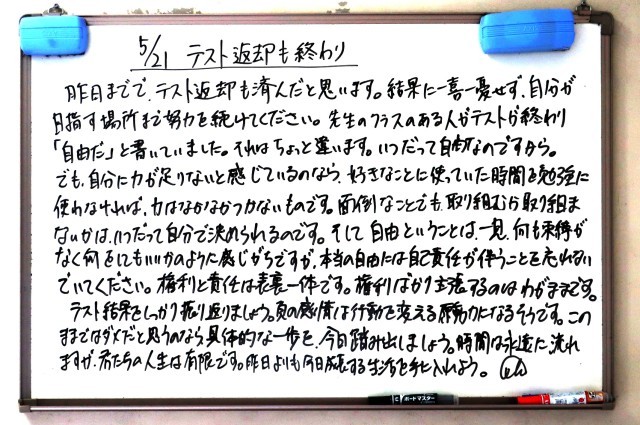 5/21 テスト返却も終わり
昨日までで、テスト返却も済んだと思います。結果に一喜一憂せず、自分が
目指す場所まで努力を続けてください。先生のクラスのある人がテストが終わり
「自由だ」と書いていました。それはちょっと違います。いつだって自由なのですから。
でも、自分に力が足りないと感じているのなら、好きなことに使っていた時間を勉強に
使わなければ、力はなかなかつかないものです。面倒なことでも、取り組むか取り組ま
ないかは、いつだって自分で決められるのです。そして自由ということは、一見、何も束縛が
なく何をしてもいいかのように感じがちですが、本当の自由には自己責任が伴うことを忘れない
でいてください。権利と責任は表裏一体です。権利ばかり主張するのはわがままです。
テスト結果をしっかり振り返りましょう。負の感情は行動を変える原動力になるそうです。この
ままではダメだと思うのなら、具体的な一歩を、今日踏み出しましょう。時間は永遠に流れ
ますが、君たちの人生は有限です。昨日よりも今日成長する生活を手に入れよう。
ボードマスター